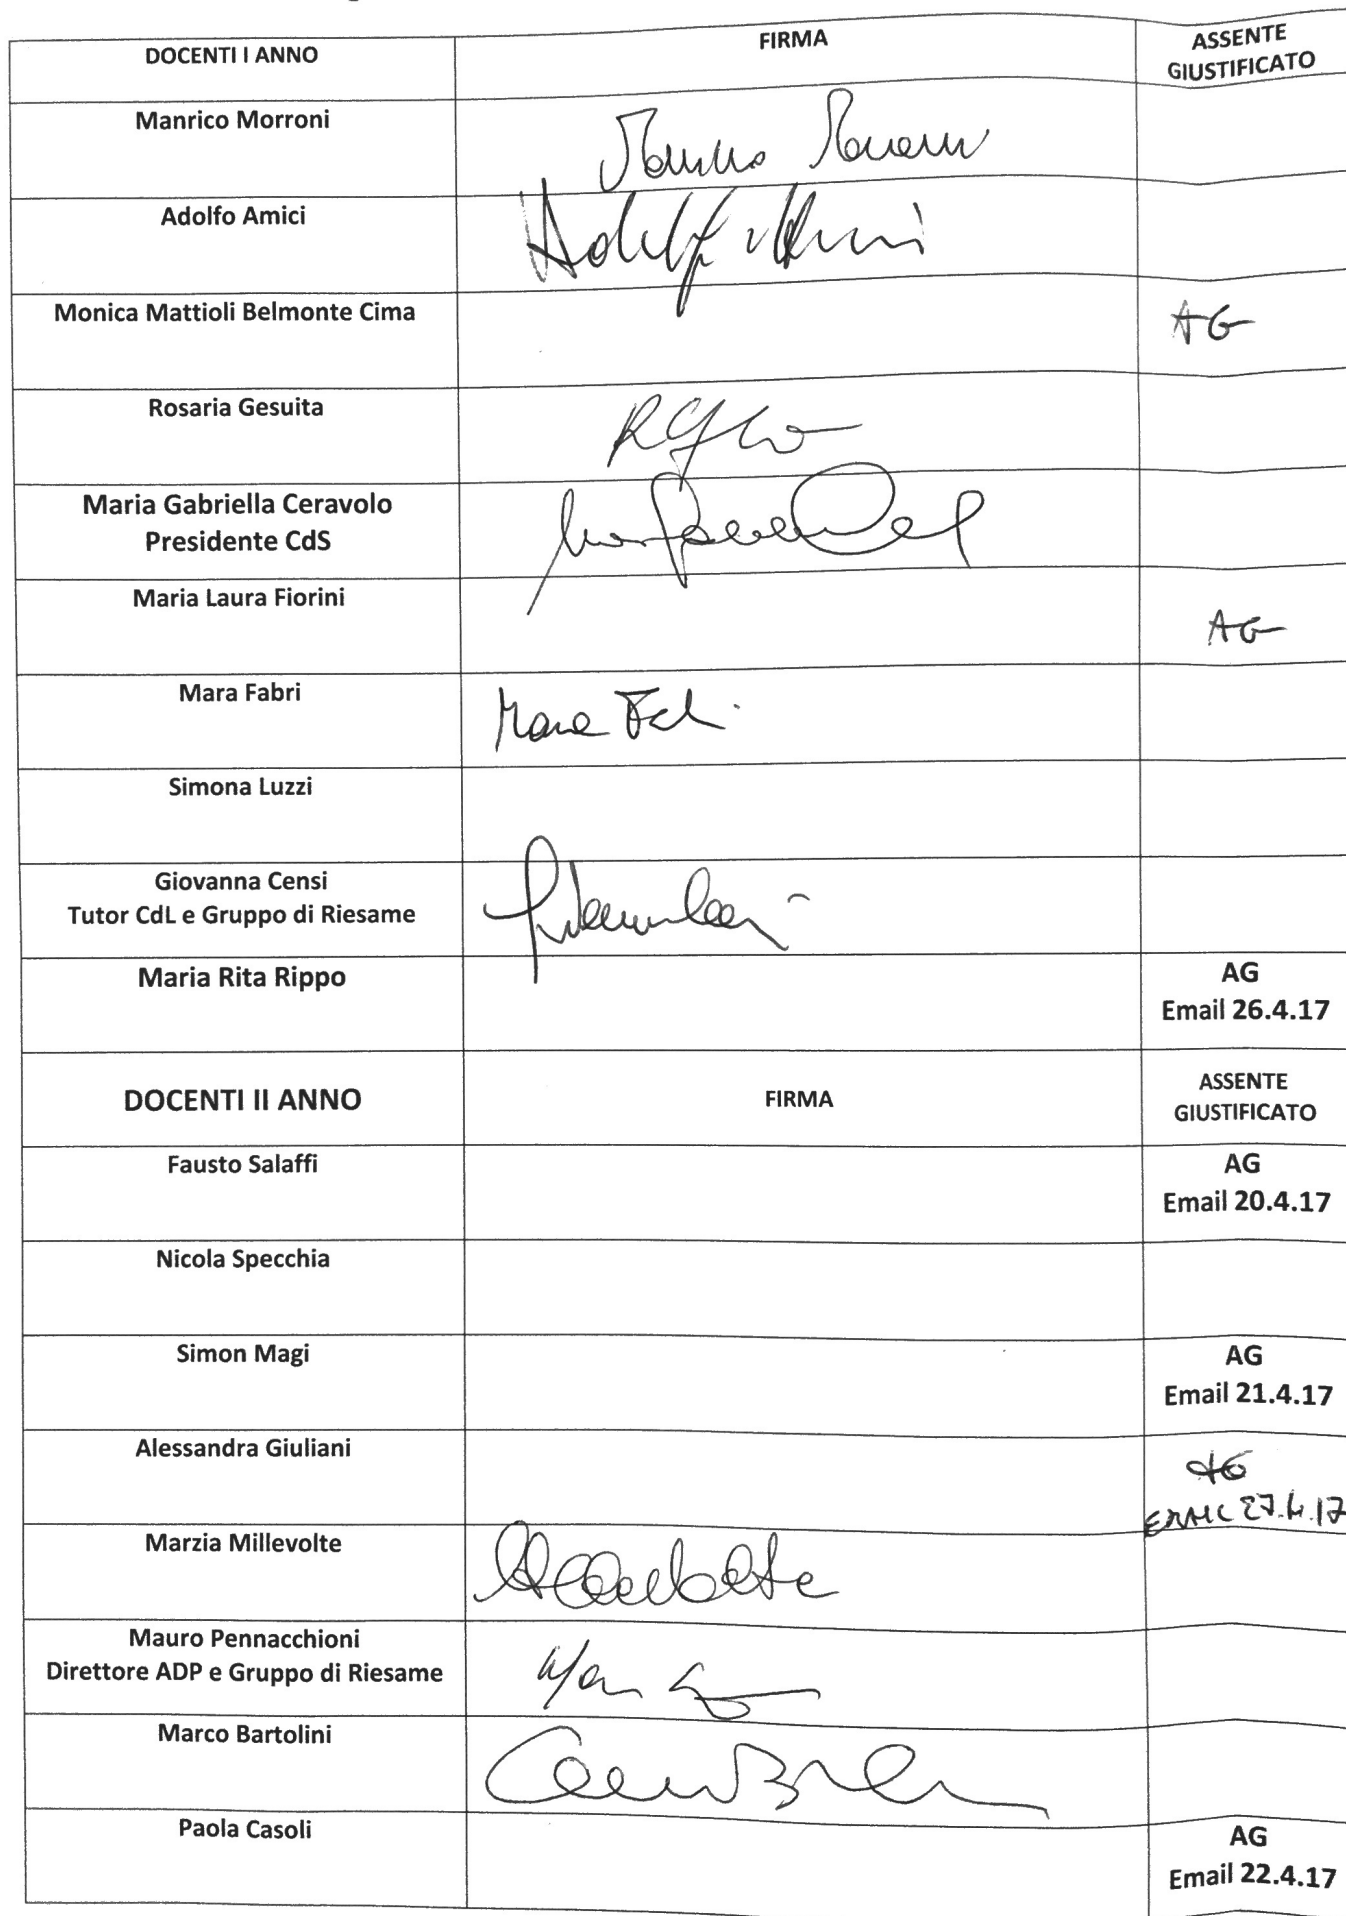 DOCENTI I ANNO FIRMA ASSENTE
GIUSTIFICATO
Manrico Morroni
Adolfo Amici Adolfo Amici
Monica Mattioli Belmonte Cima AG
Rosaria Gesuita
Maria Gabriella Ceravolo
Presidente CdS
Maria Laura Fiorini AG
Mara Fabri Mara
Simona Luzzi
Giovanna Censi
Tutor CdL e Gruppo di Riesame
Maria Rita Rippo AG
Email 26.4.17
DOCENTI II ANNO FIRMA ASSENTE
GIUSTIFICATO
Fausto Salaffi AG
Email 20.4.17
Nicola Specchia
Simon Magi AG
Email 21.4.17
Alessandra Giuliani AG
27.4.17
Marzia Millevolte
Mauro Pennacchioni
Direttore ADP e Gruppo di Riesame
Marco Bartolini
Paola Casoli AG
Email 22.4.17